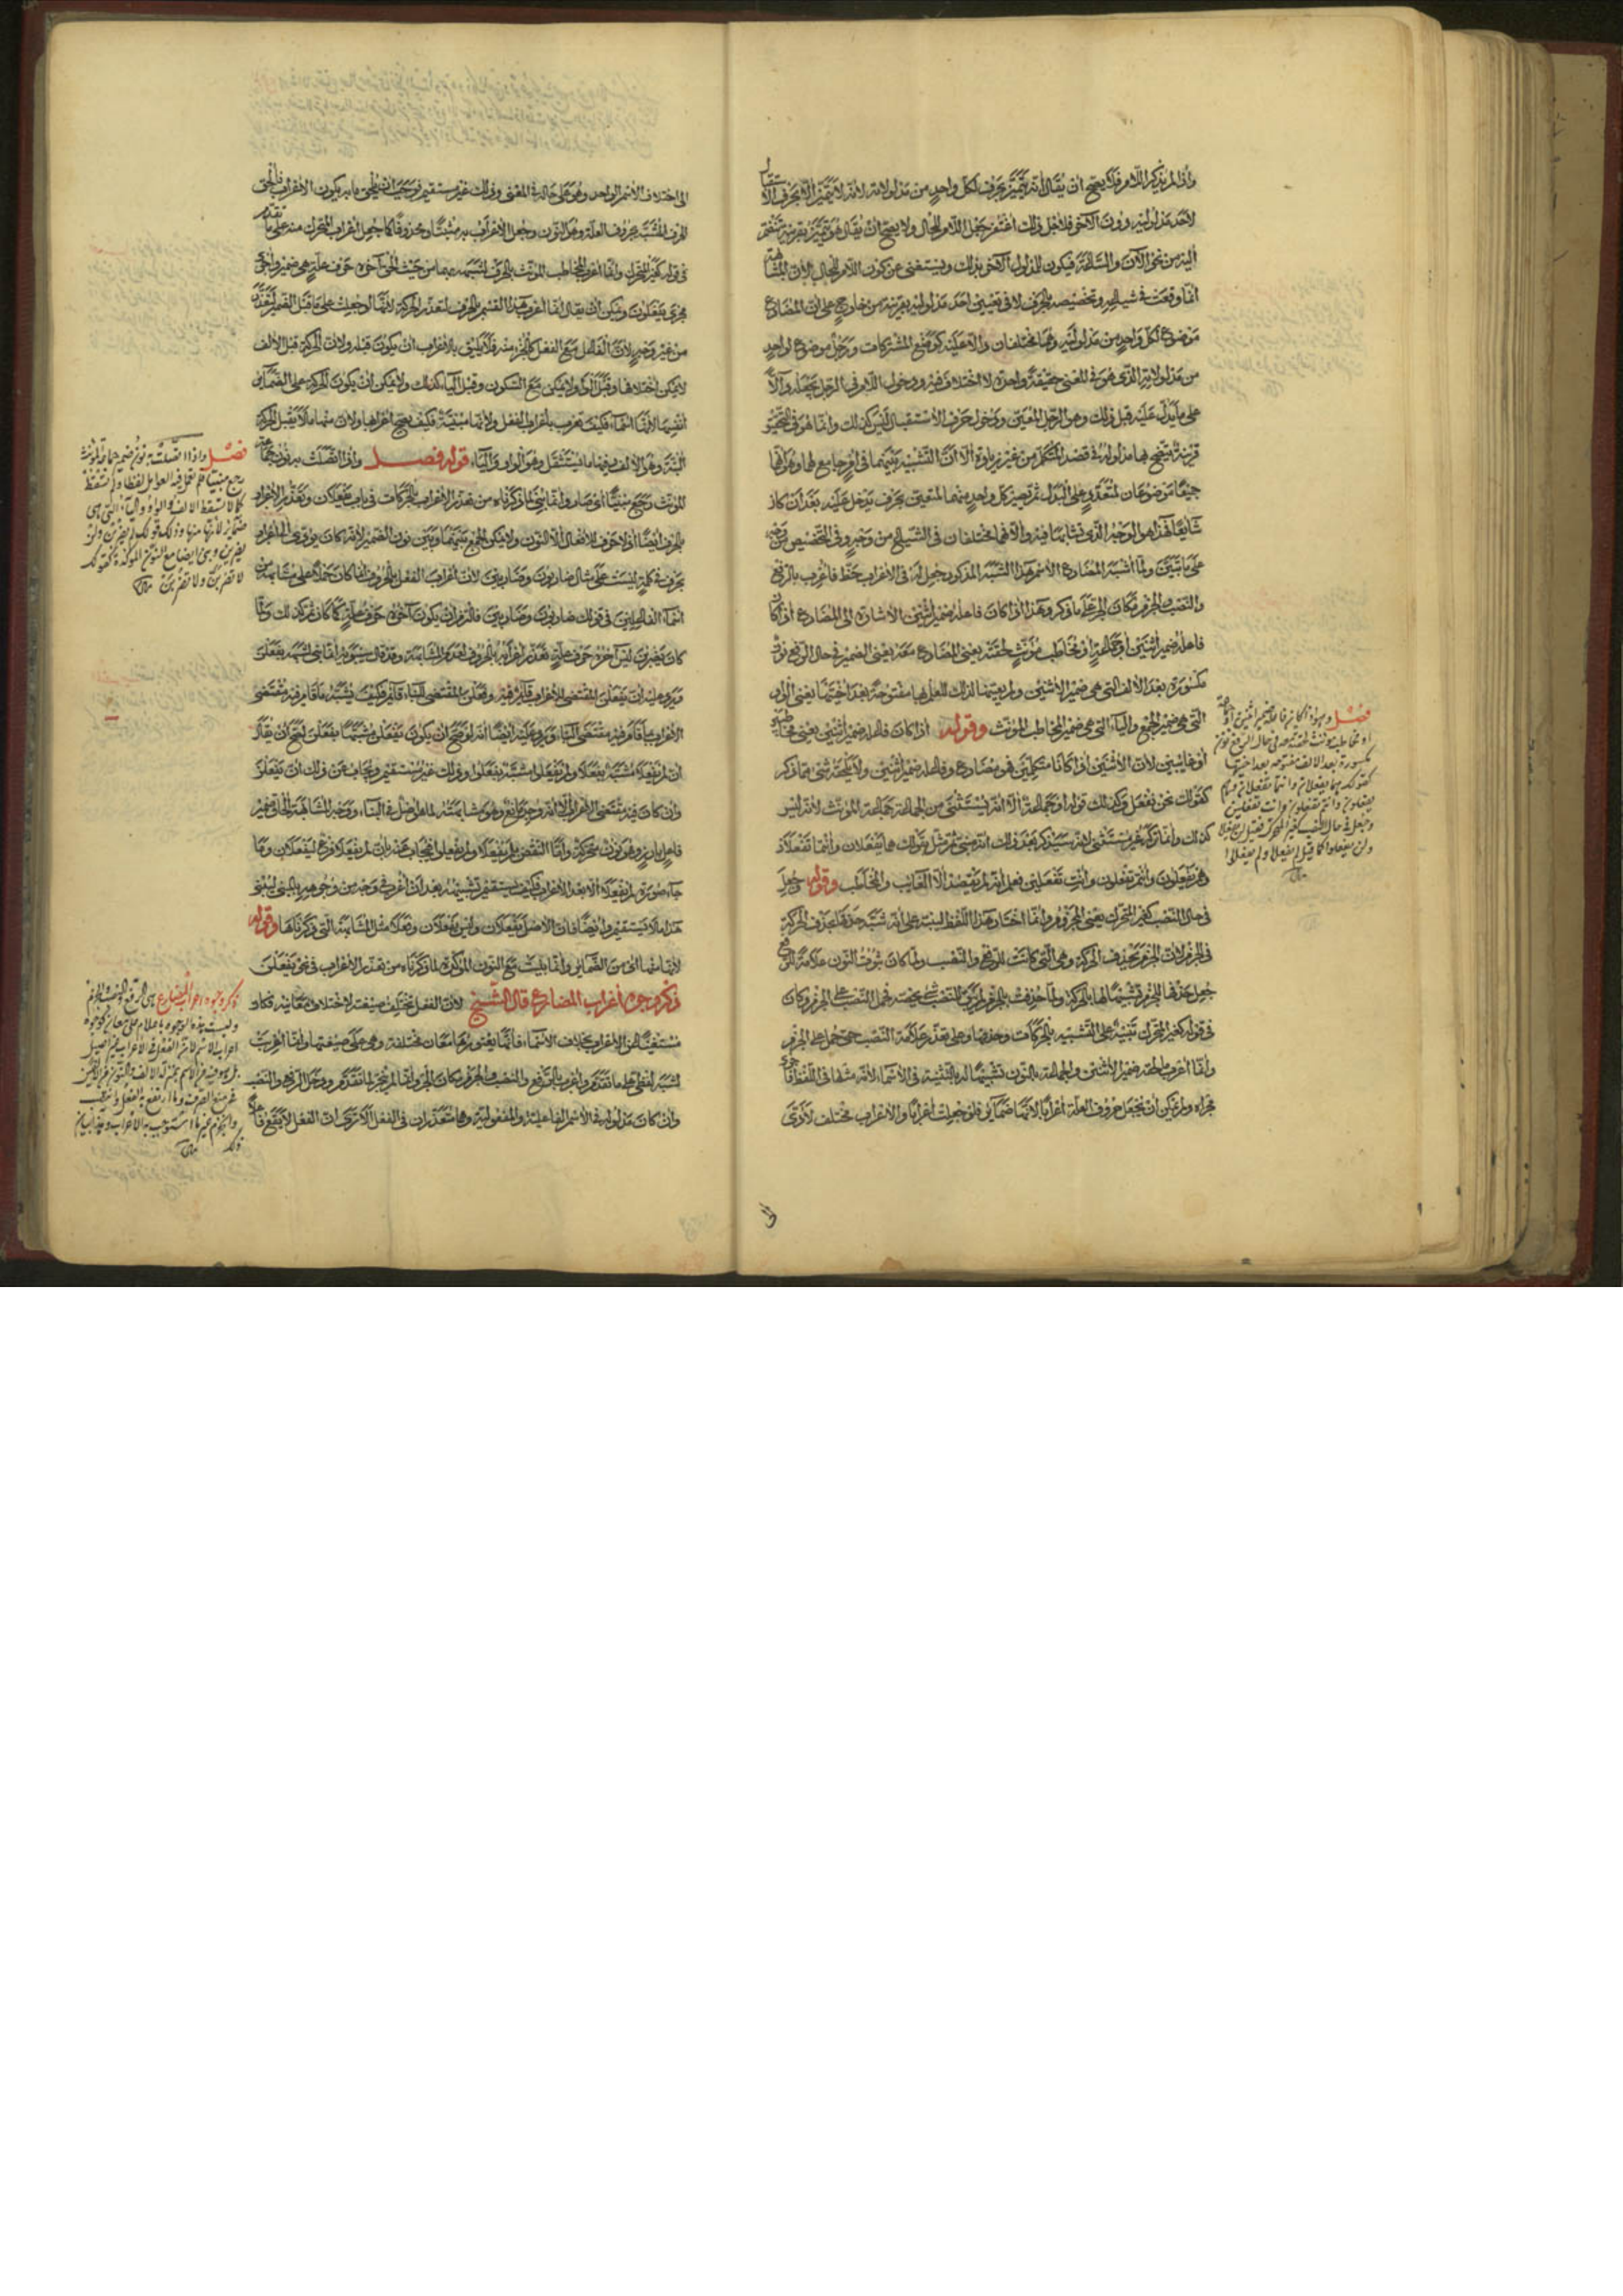 وإذا لم يذكر اللام فلا يصح أن يقال أنه يتميز بحرف لكل واحد من مدلولاته لأنه لا يتميز إلا بحرف الاستقبال
لأحد مدلوليه دون الآخر فلأجل ذلك اغتفر جعل اللام للحال ولا يصح أن يقال هو يتميز بقرينة تنضم
إليه من نحو الآن والساعة فيكون للدلول الآخر بذلك ويستغنى عن كون اللام للحال لأن المشابهة
إنما وقعت في شياعه وتخصيصه بالحرف لا في تعيين أحد مدلوليه بقرينة من خارج على أن المضارع
موضوع لكل واحد من مدلوليه وهما مختلفان دلالة عليه كوضع المشتركات ورجل موضوع لواحد
من مدلولاته الذي هو في المعنى حقيقة واحدة لا اختلاف فيه ودخول اللام في الرجل يجعله دالا
على ما يدل عليه قبل ذلك وهو الرجل المعين ودخول حرف الاستقبال ليس كذلك وإنما هو في التحقيق
قرينة يتضح بها مدلوله في قصد المتكلم من غير زيادة إلا أن التشبيه بينهما في أمر جامع لهما وهو أنهما
جميعا موضوعان لمتعدد على البدل ثم يصير كل واحد منهما لمعين بحرف يدخل عليه بعد أن كان
شايعا فهذا هو الوجه الذي تشابها فيه وإلا فهما مختلفان في الشياع من وجه وفي التخصيص من وجه
على ما تبين ولما أشبه المضارع الاسم هذا الشبه المذكور جعل له في الإعراب حظ فأعرب بالرفع
والنصب والجزم مكان الجر على ما ذكر وهذا إذا كان فاعله ضمير اثنين الإشارة إلى المضارع إذا كان
فاعله ضمير اثنين أو جماعة أو مخاطب مؤنث لحقته يعني المضارع معه يعني الضمير في حال الرفع نون
مكسورة بعد الألف التي هي ضمير الاثنين ولم يقيدها لذلك للعلم بها مفتوحة بعد أختيها يعني الواو
التي هي ضمير الجمع والياء التي هي ضمير المخاطب المؤنث وقوله إذا كان فاعله ضمير اثنين يعني مخاطبين
أو غايبين لأن الاثنين إذا كانا متكلمين فهو مضارع وفاعله ضمير اثنين ولا يلحقه شيء مما ذكر
كقولك نحن نفعل وكذلك قوله أو جماعة إلا أنه يستثنى من الجماعة جماعة المؤنث لأنه ليس
كذلك وإنما تركه غير مستثنى لأنه سيذكر بعد ذلك أنه مبني ثم مثل بقولك هما يفعلان وأنتما تفعلان
وهم يفعلون وأنتم تفعلون وأنت تفعلين فعلم أنه لم يقصد إلا الغائب والمخاطب وقوله وجعل
في حال النصب كغير المتحرك يعني المجزوم وإنما اختار هذا اللفظ لينبه على أنه شبه حذفها بحذف الحركة
في الجزم لأن الجزم بحذف الحركة وهي التي كانت للرفع والنصب ولما كان ثبوت النون علامة للرفع
جعل حذفها للجزم تشبيها لها بالحركة ولما حذفت بالجزم لم يبق للنصب شيء يخصه فحمل النصب على الجزم وكان
في قوله كغير المتحرك تنبيه على التشبيه بالحركات وحذفها وعلى تعذر علامة النصب حتى حمل على الجزم
وإنما أعرب ما لحقه ضمير الاثنين والجماعة بالنون تشبيها له بالتثنية في الأسماء لأنه مثلها في اللفظ فأجري
مجراه ولم يمكن أن تجعل حروف العلة إعرابا لأنها ضمائر فلو جعلت إعرابا والإعراب مختلف لأدى
إلى
فصل وهو إذا كان فاعله ضمير اثنين أو جماعة
أو مخاطب مؤنث لحقته معه في حال الرفع نون
مكسورة بعد الألف مفتوحة بعد أختيها
كقولك هما يفعلان وأنتما تفعلان وهم
يفعلون وأنتم تفعلون وأنت تفعلين
وجعل في حال النصب كغير المتحرك فقيل لن يفعلا
ولن يفعلوا كما قيل لم يفعلا ولم يفعلوا
إلى اختلاف الاسم الواحد وهو على حاله في المعنى وذلك غير مستقيم فوجب أن يلحق ما به يكون الإعراب فألحق
الحرف المشبه بحروف العلة وهو النون وجعل الإعراب به مثبتا ومحذوفا كما جعل إعراب المتحرك منه على ما تقدم
في قوله كغير المتحرك وإنما أعرب المخاطب المؤنث بالحرف لشبهه بهما من حيث لحق آخره حرف علة هي ضمير وأجري
مجرى يفعلون ويمكن أن يقال إنما أعرب هذا القسم بالحرف لتعذر الحركة لأنها لو جعلت على ما قبل الضمير لتعذر
من غير وجه لأن الفاعل مع الفعل كالجزء منه فلا يليق بالإعراب أن يكون قبله ولأن الحركة قبل الألف
لا يمكن اختلافها وقبل الواو لا يمكن مع السكون وقبل الياء كذلك ولا يمكن أن يكون الحركة على الضمائر
أنفسها لأنها أسماء فكيف تعرب بإعراب الفعل ولأنها مبنية فكيف يصح إعرابها ولأن منها ما لا يقبل الحركة
البتة وهو الألف ومنها ما يستثقل وهو الواو والياء قوله فصل وإذا اتصلت به نون جماعة
المؤنث رجع مبنيا أي صار وإنما بني لما ذكرناه من تعذر الإعراب بالحركات في باب يفعلان وتعذر الإعراب
بالحرف أيضا إذ لا حرف للأفعال إلا النون ولا يمكن الجمع بينها وبين نون الضمير لأنه كان يؤدي إلى إعراب
بحرف في كلمة ليست على مثال ضاربون وضاربين لأن إعراب الفعل بالحروف إنما كان حملا على مشابهه من
أسماء الفاعلين في قولك ضاربون وضاربين فالتزم أن يكون آخره حرف علة كما كان ثم كذلك ولما
كان يضربن ليس آخره حرف علة تعذر إعرابه بالحروف لعدم المشابهة وقد قال سيبويه إنما بني لشبهه بفعلن
ويرد عليه أن يفعلن المقتضي للإعراب قائم فيه وفعلن المقتضي للبناء قائم فكيف يشبه ما قام فيه مقتضى
الإعراب بما قام فيه مقتضى البناء ويرد عليه أيضا أنه لو صح أن يكون يفعلن مشبها بفعلن لصح أن يقال
إن لم يفعلا مشبه بفعلا ولم يفعلوا مشبه بفعلوا وذلك غير مستقيم ويجاب عن ذلك أن يفعلن
وإن كان فيه مقتضى الإعراب إلا أنه وجد مانع وهو مشابهته لما هو أصل في البناء ووجه المشابهة إلحاق ضمير
فاعل بارز وهو نون متحركة وأما النقض بلم يفعلا ولم يفعلوا فيجاب عنه بأن لم يفعلا فرع ليفعلان وما
جاء صورة لم يفعلا إلا بعد الإعراب فكيف يستقيم تشبيهه بعد أن أعرب في وجه من وجوهه بالمبني ليبنى
هذا ما لا يستقيم وأيضا فإن الأصل يفعلان وليس بين يفعلان وفعلا مثل المشابهة التي ذكرناها وقوله
لأنها منها أي من الضمائر وإنما بنيت مع النون المؤكدة لما ذكرناه من تعذر الإعراب في نحو يفعلن
ذكر وجوه إعراب المضارع قال الشيخ لأن الفعل تختلف صيغته لاختلاف معانيه فكان
مستغنيا عن الإعراب بخلاف الأسماء فإنها يعتورها معان مختلفة وهي على صيغتها وإنما أعرب
لشبه لفظي على ما تقدم وأعرب بالرفع والنصب والجزم مكان الجر وإنما لم يجر لما تقدم ودخل الرفع والنصب
وإن كان مدلوله في الاسم الفاعلية والمفعولية وهما متعذران في الفعل ألا ترى أن الفعل لا يقع فاعلا
فصل وإذا اتصلت به نون ضمير جماعة المؤنث
رجع مبنيا فلم تعمل فيه العوامل لفظا ولم تسقط
كما لا تسقط الألف والواو والياء التي هي
ضمائر لأنها منها وذلك قولك لم يضربن ولن
يضربن ويبنى أيضا مع النون المؤكدة كقولك
لا تضربن ولا تضربن
ذكر وجوه إعراب المضارع هي الرفع والنصب والجزم
وليست هذه الوجوه بأعلام على معان كوجوه
إعراب الاسم لأن الفعل في الإعراب غير أصيل
بل هو فيه من الاسم بمنزلة الألف والنون من الألفين
في منع الصرف وما ارتفع به الفعل وانتصب
وانجزم غير ما استوجب به الإعراب وهذا بيان
ذلك